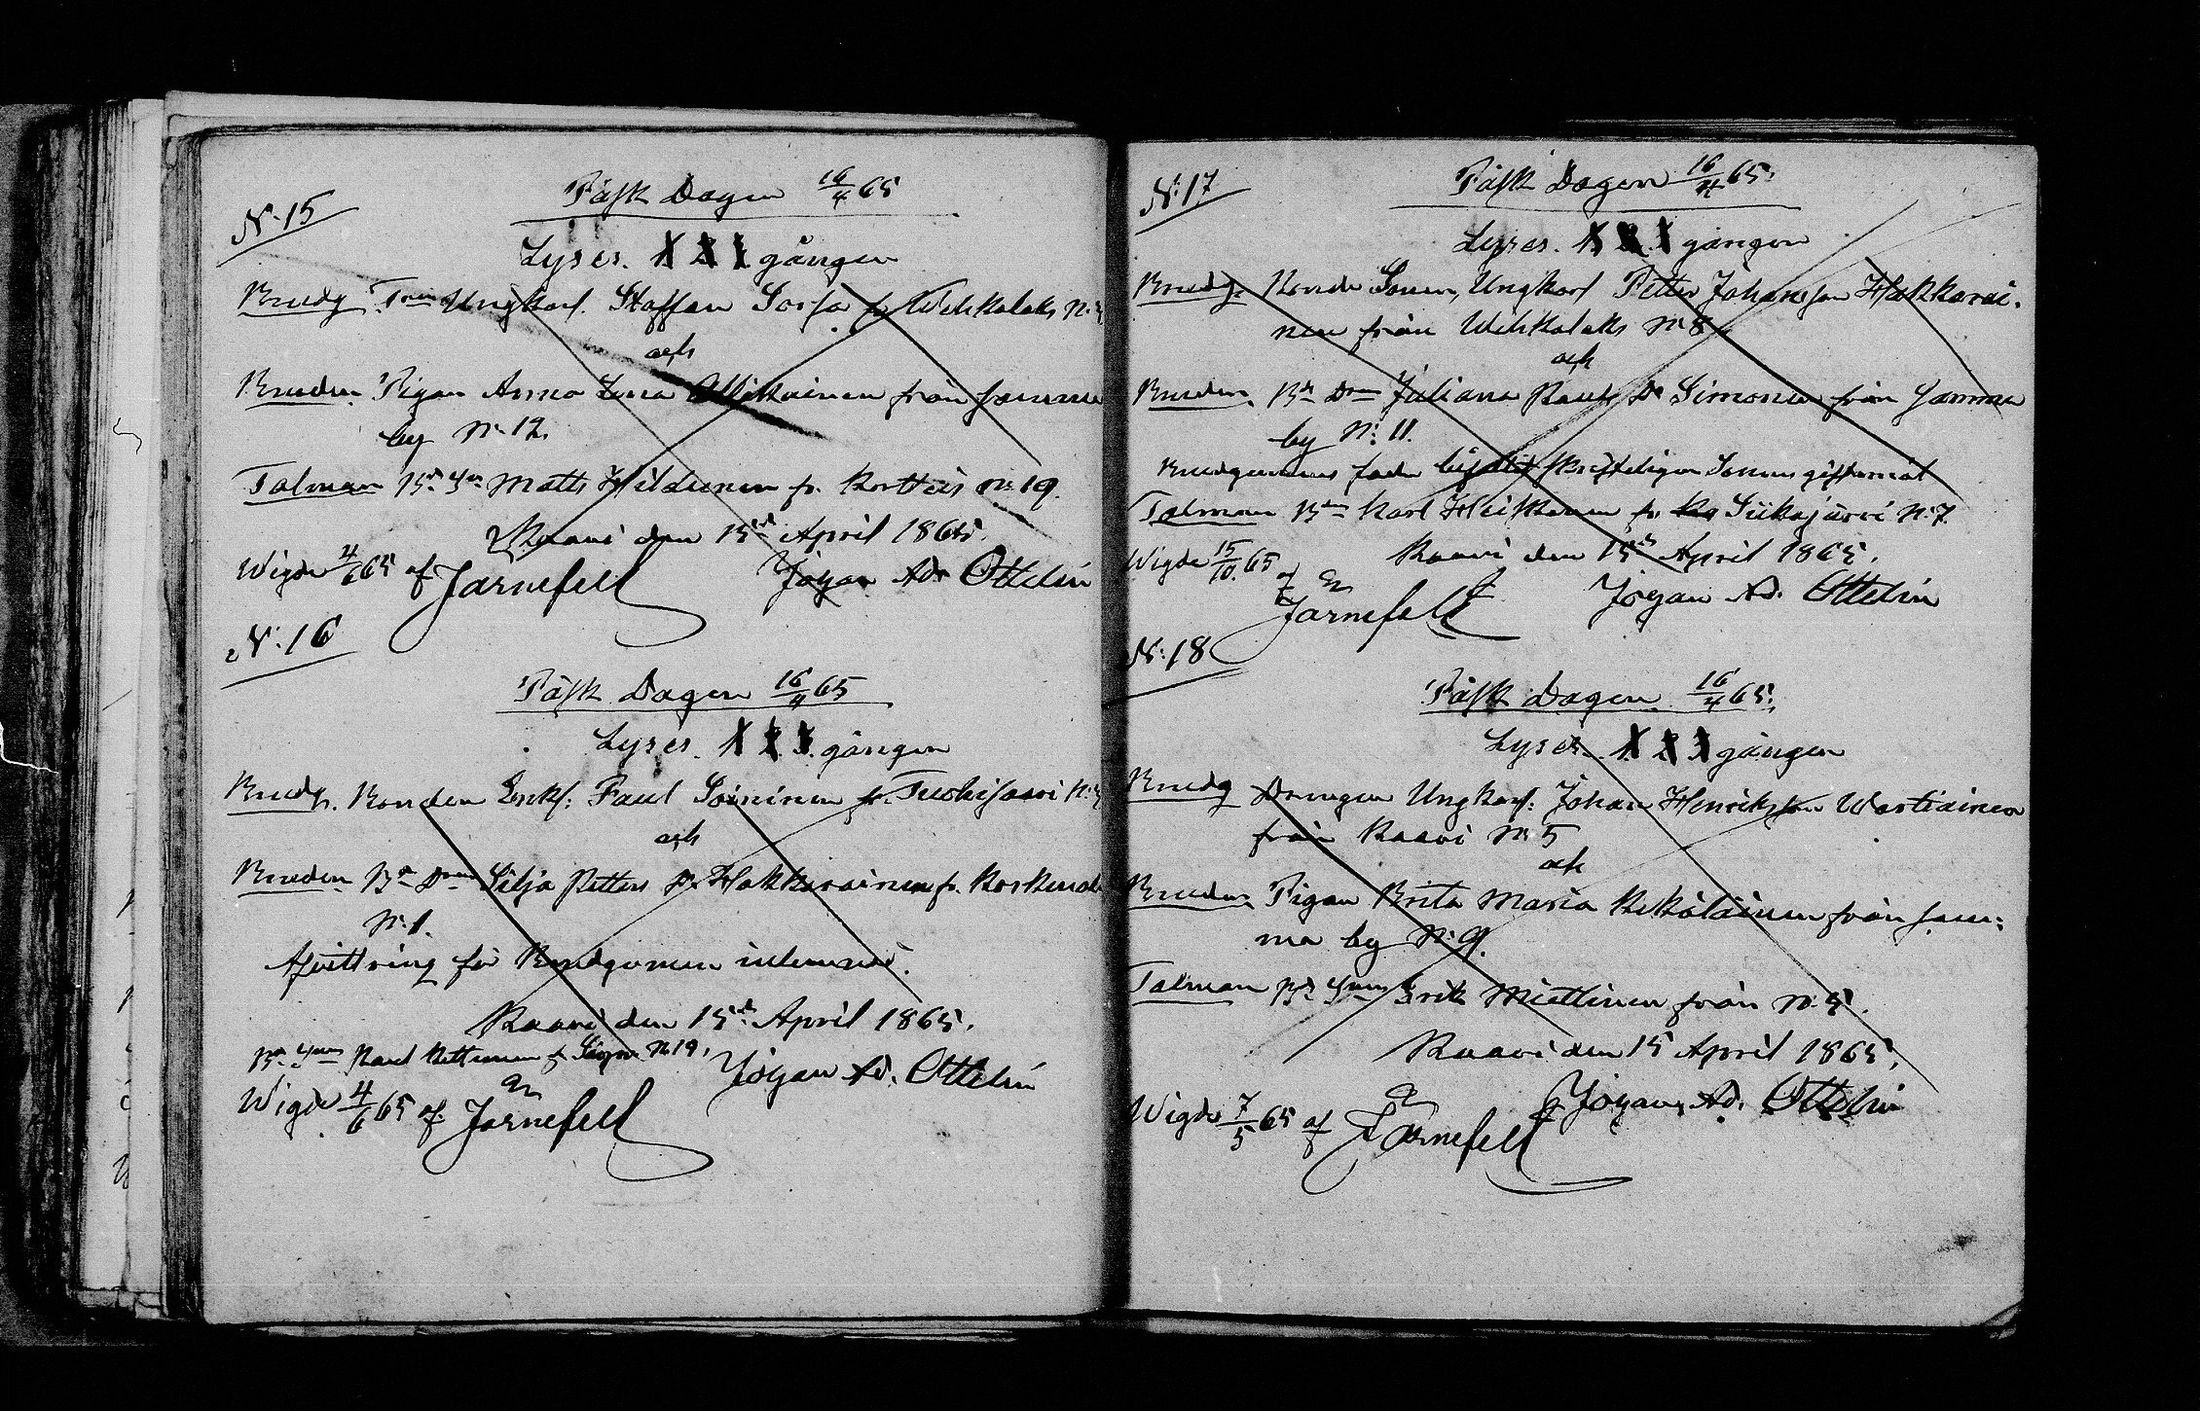 N:15
Påsk Dagen 16/4 65
Lyses. 1 2 3 gången
Brudg. Ungkarl. Staffan Sorsa fr. Wehkalaks N:
och
Bruden Pigan Anna Lena från Jamma
by N:12.
Talman Bd Sn Matts Hildunen fr. Kortteis N:19.
Kaavi den 15de April 1865.
Wigde 4/6 65 af Järnefelt Johan Ad. Ottelin
N:16
Påsk Dagen 16/4 65
Lyses. 1 2 3 gången
Brudg. Bonden Enkl: Paul Soininen fr. Tuohisaari N:
och
Bruden Bd Dren Silja Petters Dr Hakkarainen fr.
N:1.
för Brudgumen
Kaavi den 15de April 1865.
Bd Sn Paul fr. N:19. Johan Ad. Ottelin
Wigde 4/6 65 af Järnefelt
N:17
Påsk Dagen 16/4 65.
Lyses. 1 2 3 gången
Brudg. Bonde Sonen, Ungkarl Petter Johansson Hakkarai-
nen från Wehkalaks N:8
och
Bruden Bd Dren Juliana Pauls Dr Simonen från Jamma
by N:11.
Brudgummens fader skrifteligen Sonens giftermål
Talman Bdn Karl Heikkinen fr. Siikajärvi N:7.
Kaavi den 15de April 1865.
Wigde 15/10 65 af Järnefelt Johan Ad. Ottelin
N:18
Påsk Dagen 16/4 65.
Lyses. 1 2 3 gången
Brudg Drengen Ungkarl: Johan Henriksson Wartiainen
från Kaavi N:5
och
Bruden Pigan Brita Maria Kekäläinen från Jam-
ma by N:9.
Talman Bd Sn Erik Miettinen från N:5.
Kaavi den 15 April 1865.
Wigde 7/5 65 af Järnefelt Johan Ad. Ottelin